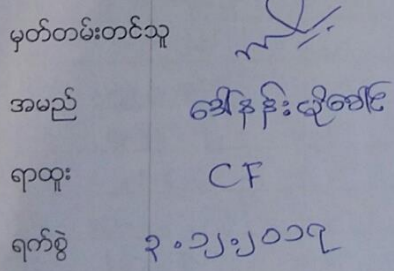 မှတ်တမ်းတင်သူ
အမည် ဒေါ်နန်းငိုခေါင်
ရာထူး CF
ရက်စွဲ ၃.၁၂.၂၀၁၇